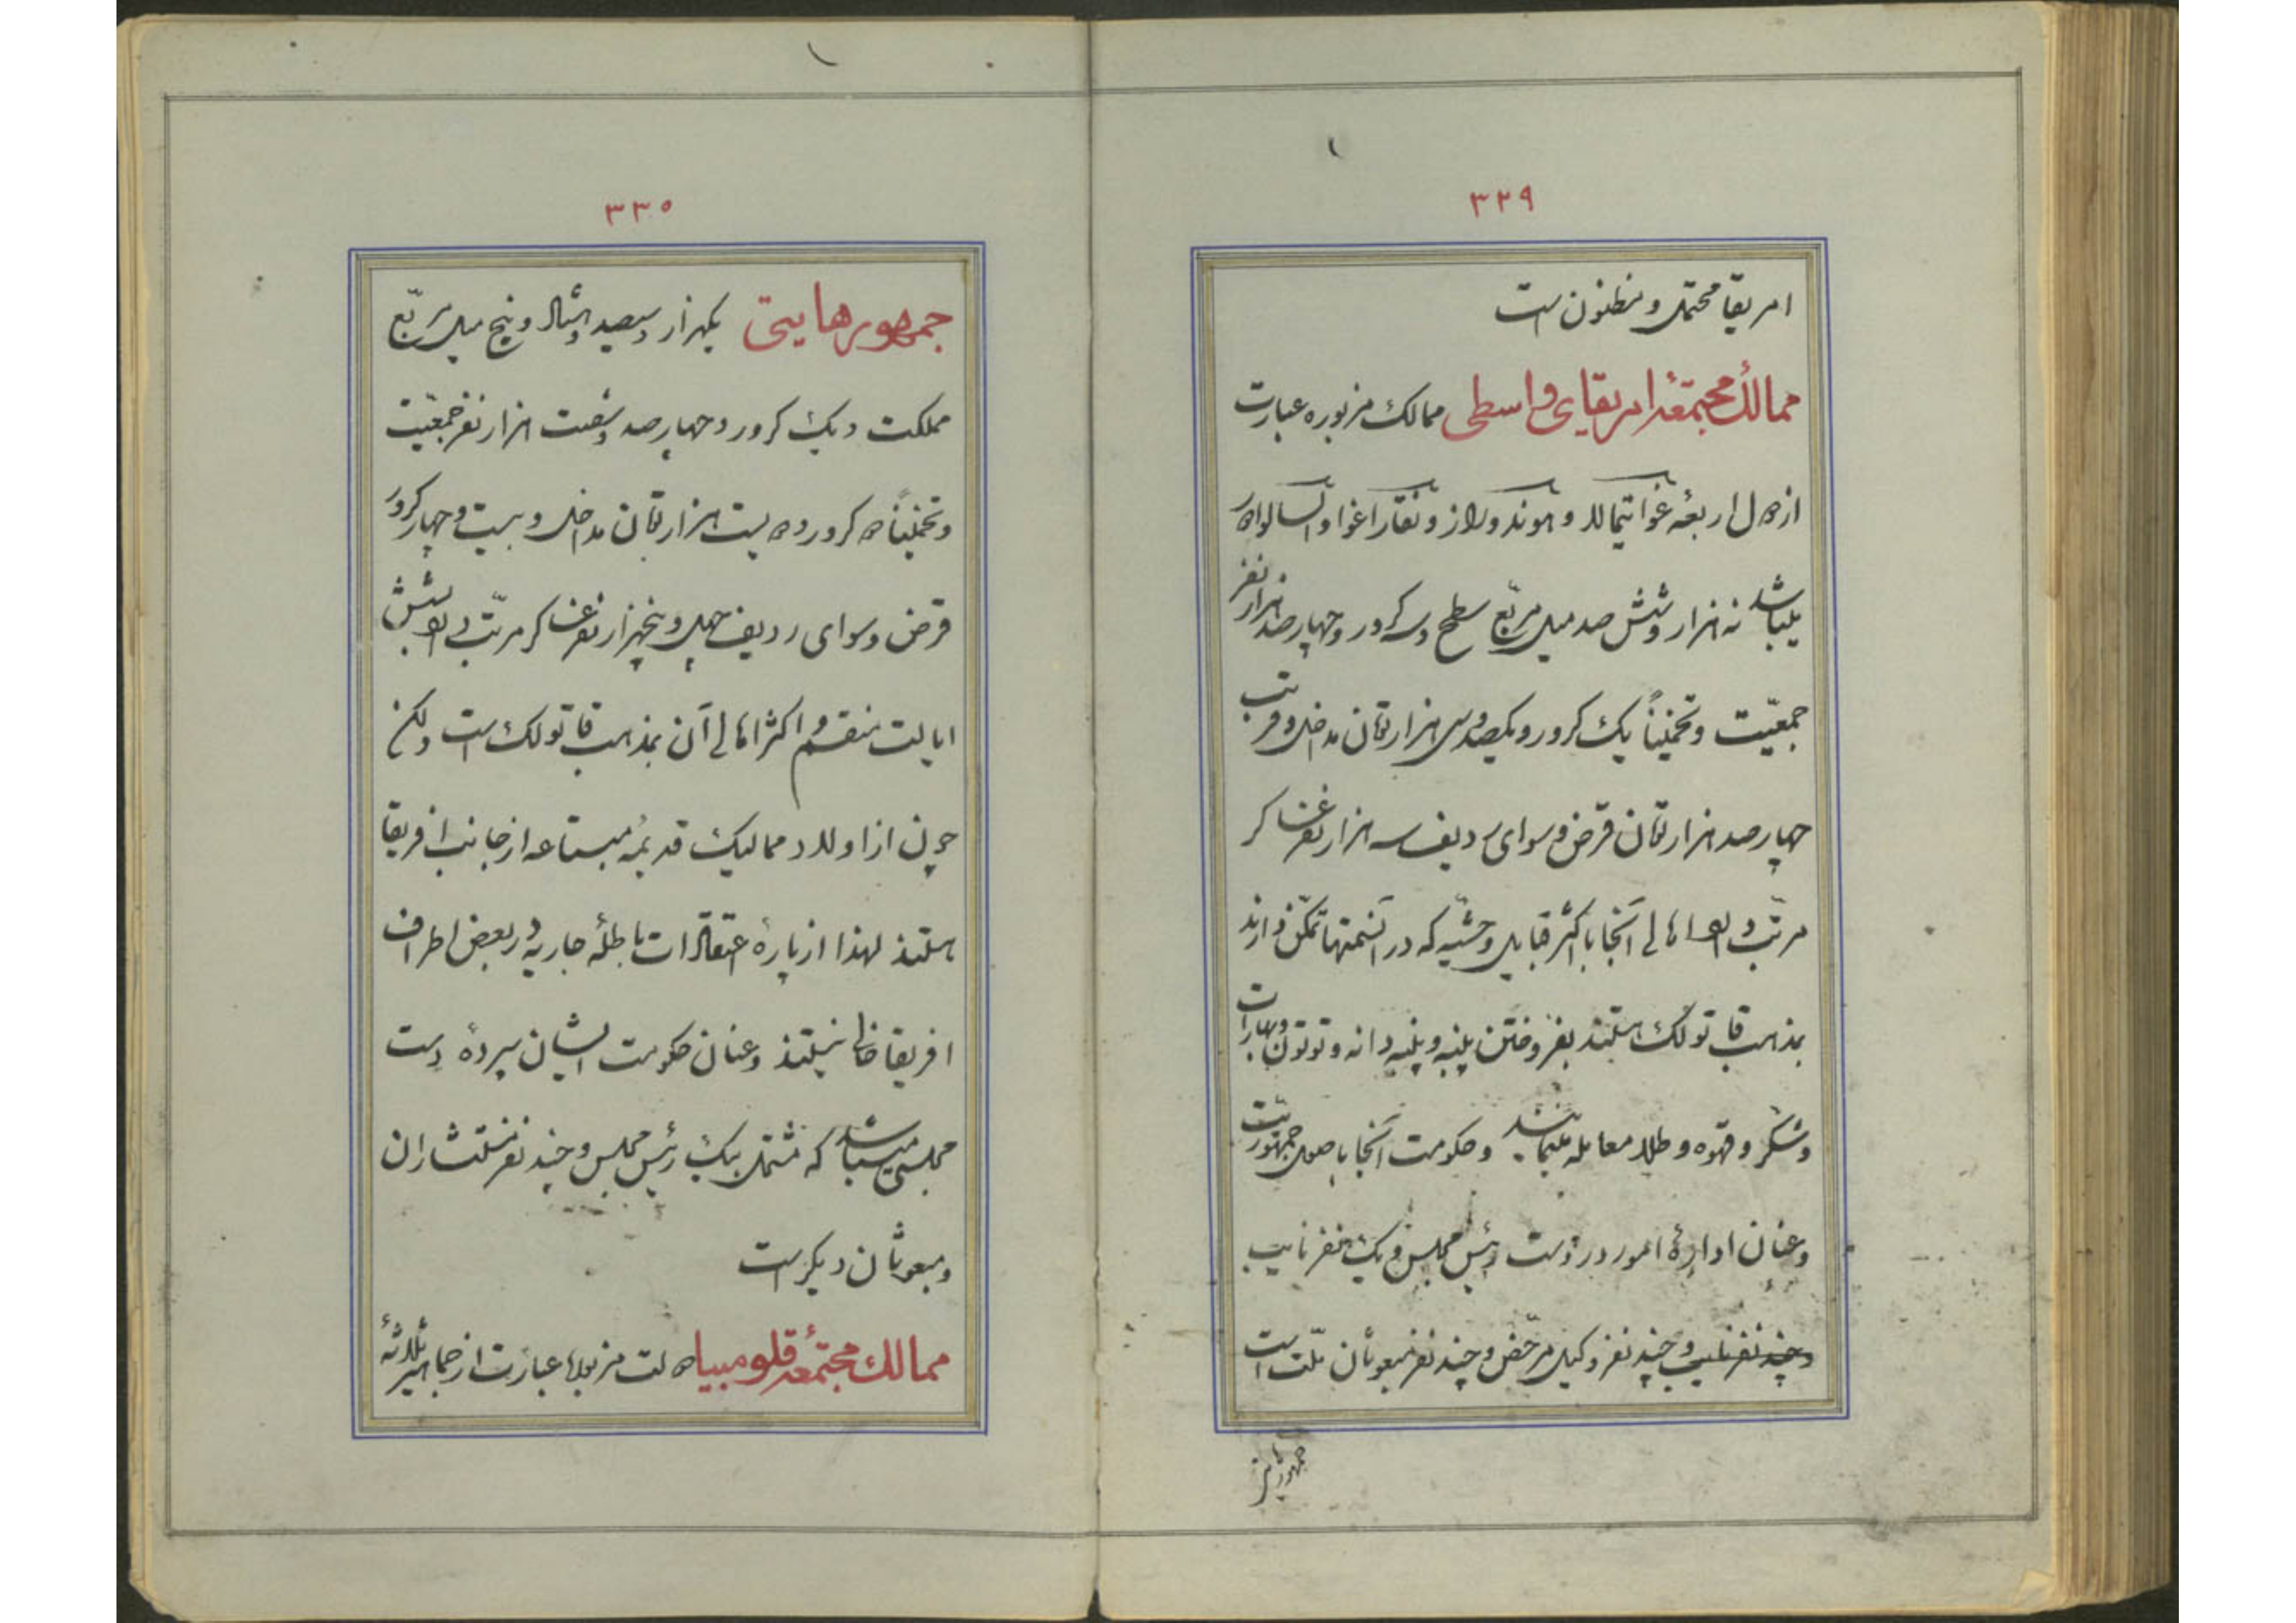 ۳۲۹
امریقا محتمل و مظنون است
ممالك مجتمعهٔ امریقای واسطی ممالک مزبوره عبارت
از دول اربعهٔ غوا تیمالا و هوندوراز و نقاراغوا و السالوادر
میباشد نه هزار و شش صد میل مربّع سطح و سه کرور و چهارصد هزار نفر
جمعیّت و تخمیناً یک کرور و یکصد و سی هزار تومان مداخل و قریب
چهارصد هزار تومان قرض و سوای ردیف سه هزار نفر عساکر
مرتّب دارد اهالی آنجا با اکثر قبایل وحشیه که در آنسمتها تمکّن دارند
بمذهب قاتولک هستند بفروختن پنبه و پنبه دانه و توتون و بهارات
و شکر و قهوه و طلا معامله مینمایند و حکومت آنجا باصول جمهوریّت
و عنان ادارهٔ امور در دست رئیس مجلس و یک نفر نایب
و چند نفر نایب و چند نفر وکیل مرخّص و چند نفر مبعوثان ملّت است
جمهور هایتی
۳۳۰
جمهور هایتی یکهزار و سیصد و هشتاد و پنج میل مربّع
مملکت و یک کرور و چهارصد و شصت هزار نفر جمعیّت
و تخمیناً ده کرور و دویست هزار تومان مداخل و بیست و چهار کرور
قرض و سوای ردیف چهل و پنجهزار نفر عساکر مرتّب دارد بشش
ایالت منقسم و اکثر اهالی آن بمذهب قاتولک است ولکن
چون از اولاد ممالیک قدیمهٔ مبتاعه از جانب افریقا
هستند لهذا از پارهٔ اعتقادات باطلهٔ جاریه در بعض اطراف
افریقا خالی نیستند و عنان حکومت ایشان سپردهٔ دست
مجلسی میباشد که مشتمل بیک رئیس مجلس و چند نفر مستشاران
و مبعوثان دیگر است
ممالك مجتمعهٔ قلومبیا دولت مزبور عبارت از جماهیر ثلاثهٔ